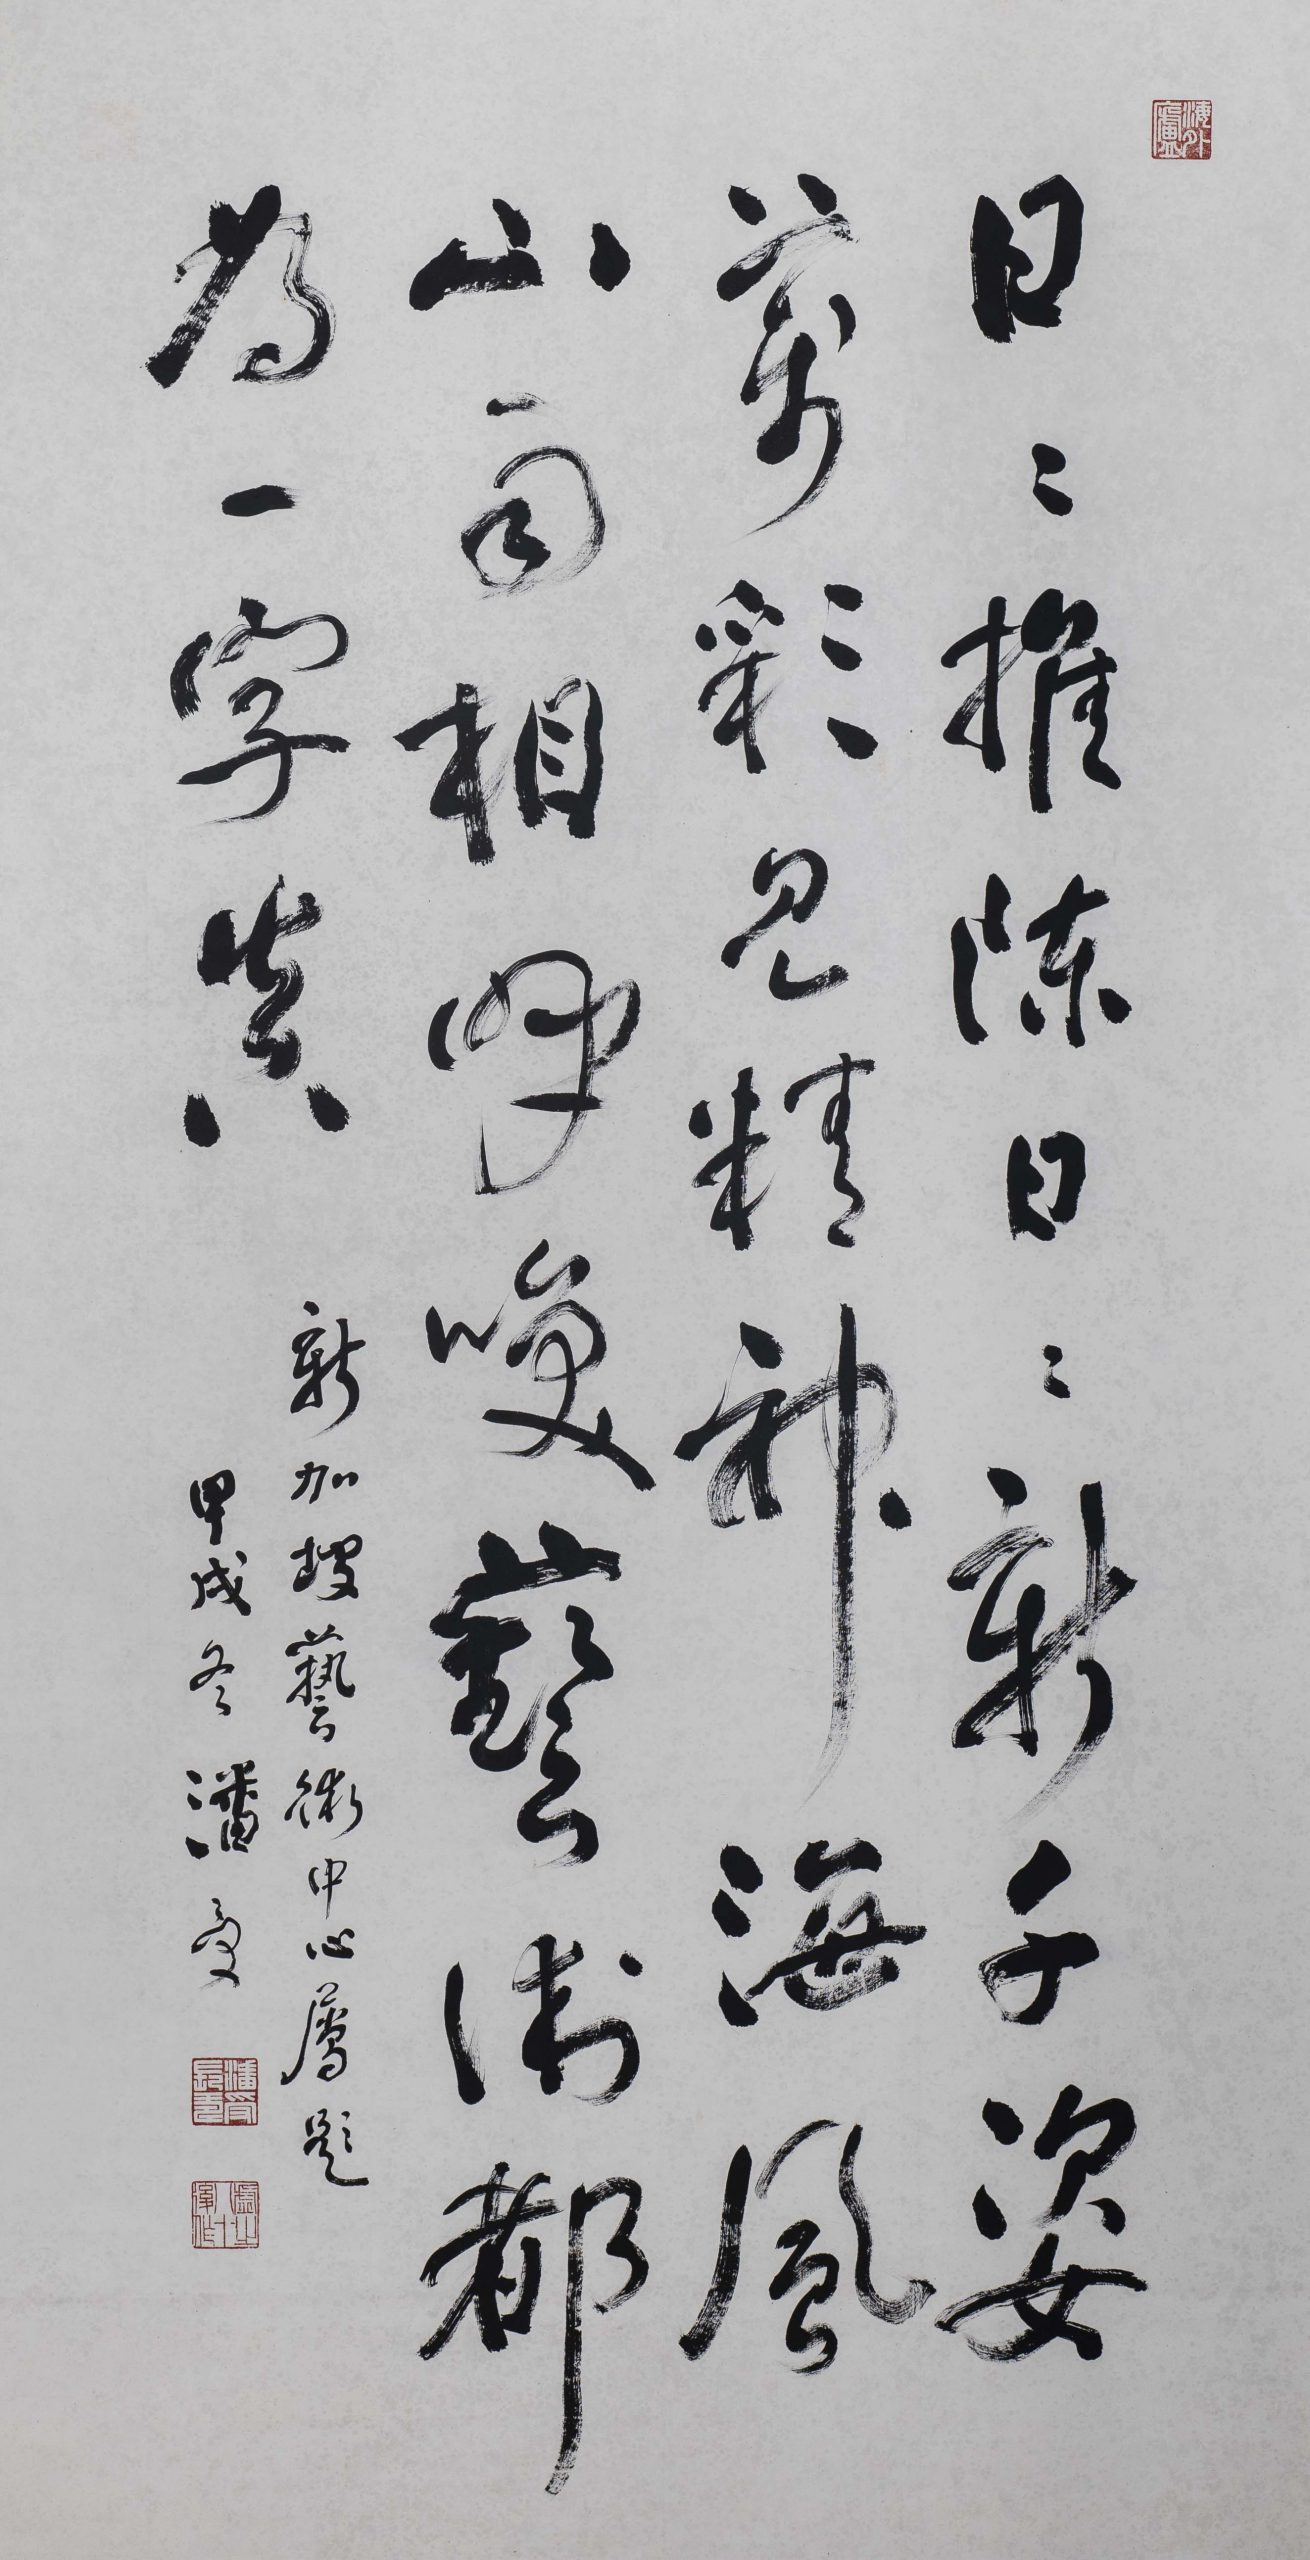 海外廬
日〻推陳日〻新千姿
萬彩見精神海風
山雨相呼喚藝術都
為一字真
新加坡藝術中心屬題
甲戌冬潘受